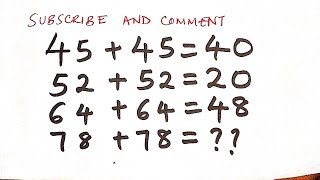 SUBSCRIBE AND COMMENT
45 + 45 = 40
52 + 52 = 20
64 + 64 = 48
78 + 78 = ??